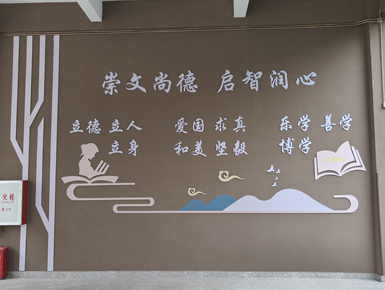 崇文尚德 启智润心
立德 立人 爱国 求真 乐学 善学
立身 和美 坚毅 博学
火栓